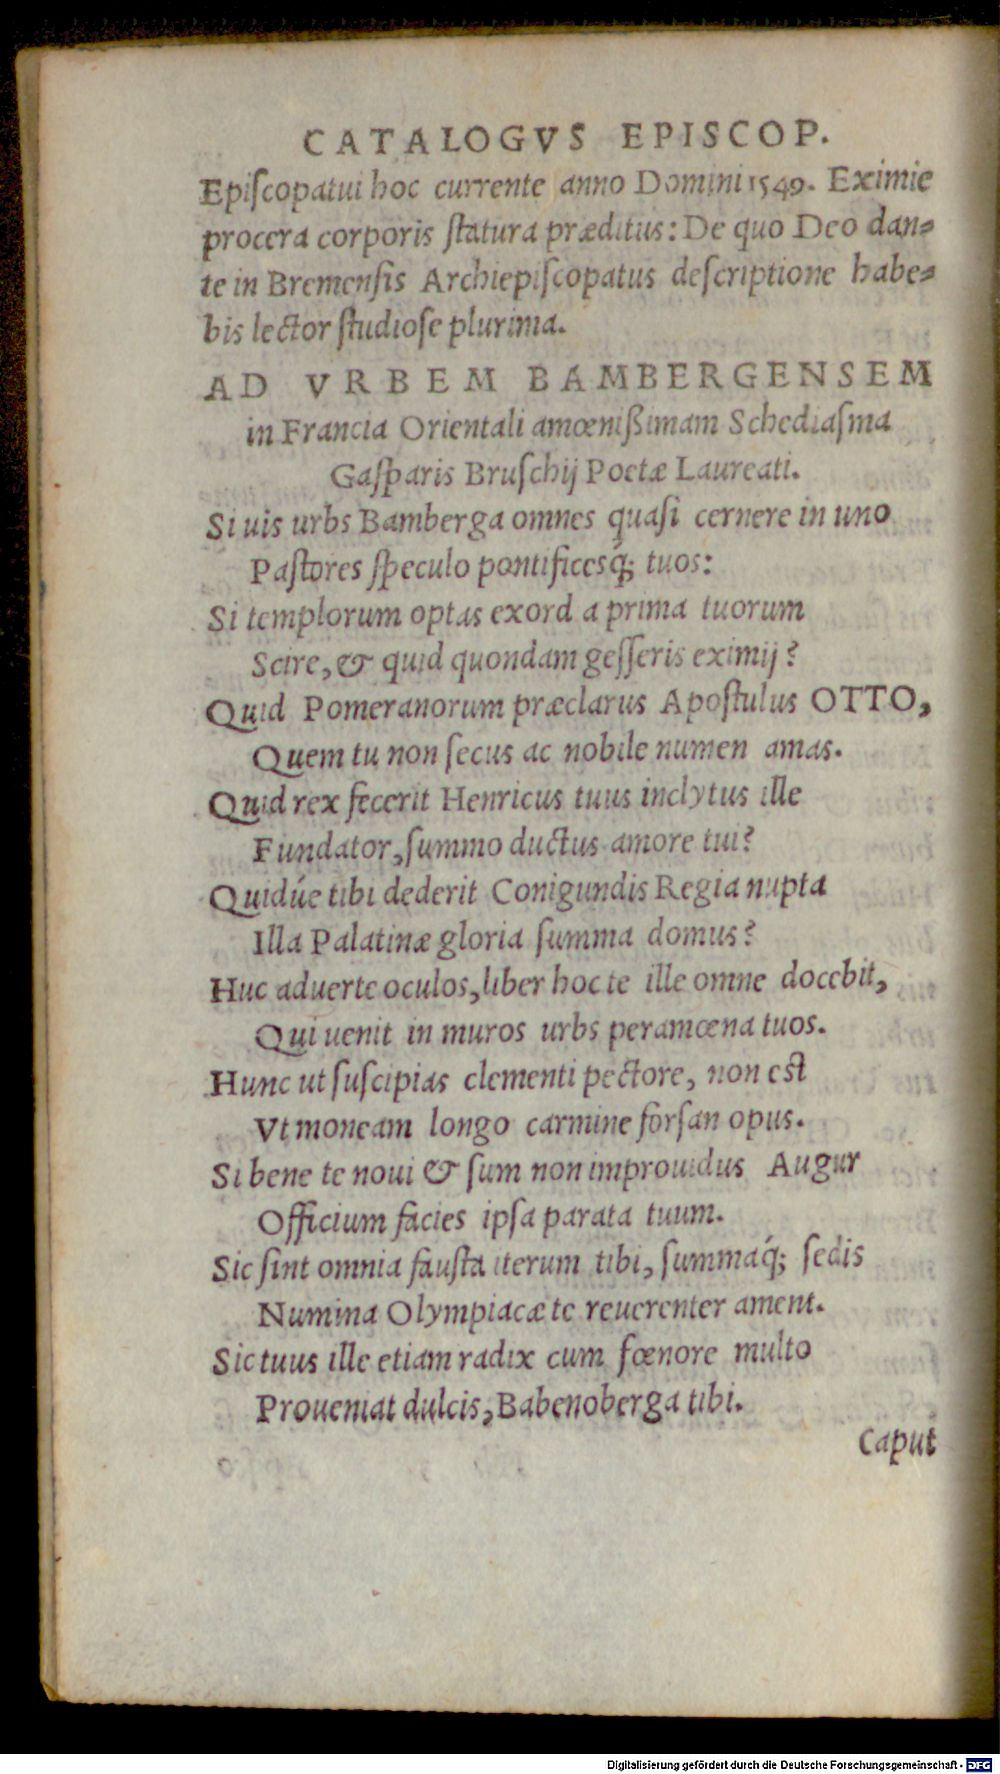 CATALOGVS EPISCOP.
Epiſcopatui hoc currente anno Domini 1549. Eximie
procera corporis ſtatura præditus: De quo Deo dan⸗
te in Bremenſis Archiepiſcopatus deſcriptione habe⸗
bis lector ſtudioſe plurima.
AD VRBEM BAMBERGENSEM
in Francia Orientali amœnißimam Schediaſma
Gaſparis Bruſchij Poetæ Laureati.
Si uis urbs Bamberga omnes quaſi cernere in uno
Paſtores ſpeculo pontificesq́; tuos:
Si templorum optas exord a prima tuorum
Scire, & quid quondam geſſeris eximij?
Quid Pomeranorum præclarus Apoſtulus OTTO,
Quem tu non ſecus ac nobile numen amas.
Quid rex fecerit Henricus tuus inclytus ille
Fundator, ſummo ductus amore tui?
Quidúe tibi dederit Conigundis Regia nupta
Illa Palatinæ gloria ſumma domus?
Huc aduerte oculos, liber hoc te ille omne docebit,
Qui uenit in muros urbs peramœna tuos.
Hunc ut ſuſcipias clementi pectore, non eſt
Vt moneam longo carmine forſan opus.
Si bene te noui & ſum non improuidus Augur
Officium facies ipſa parata tuum.
Sic ſint omnia fauſta iterum tibi, ſummaq́; ſedis
Numina Olympiacæ te reuerenter ament.
Sic tuus ille etiam radix cum fœnore multo
Proueniat dulcis, Babenoberga tibi.
Caput
Digitalisierung gefördert durch die Deutsche Forschungsgemeinschaft - DFG